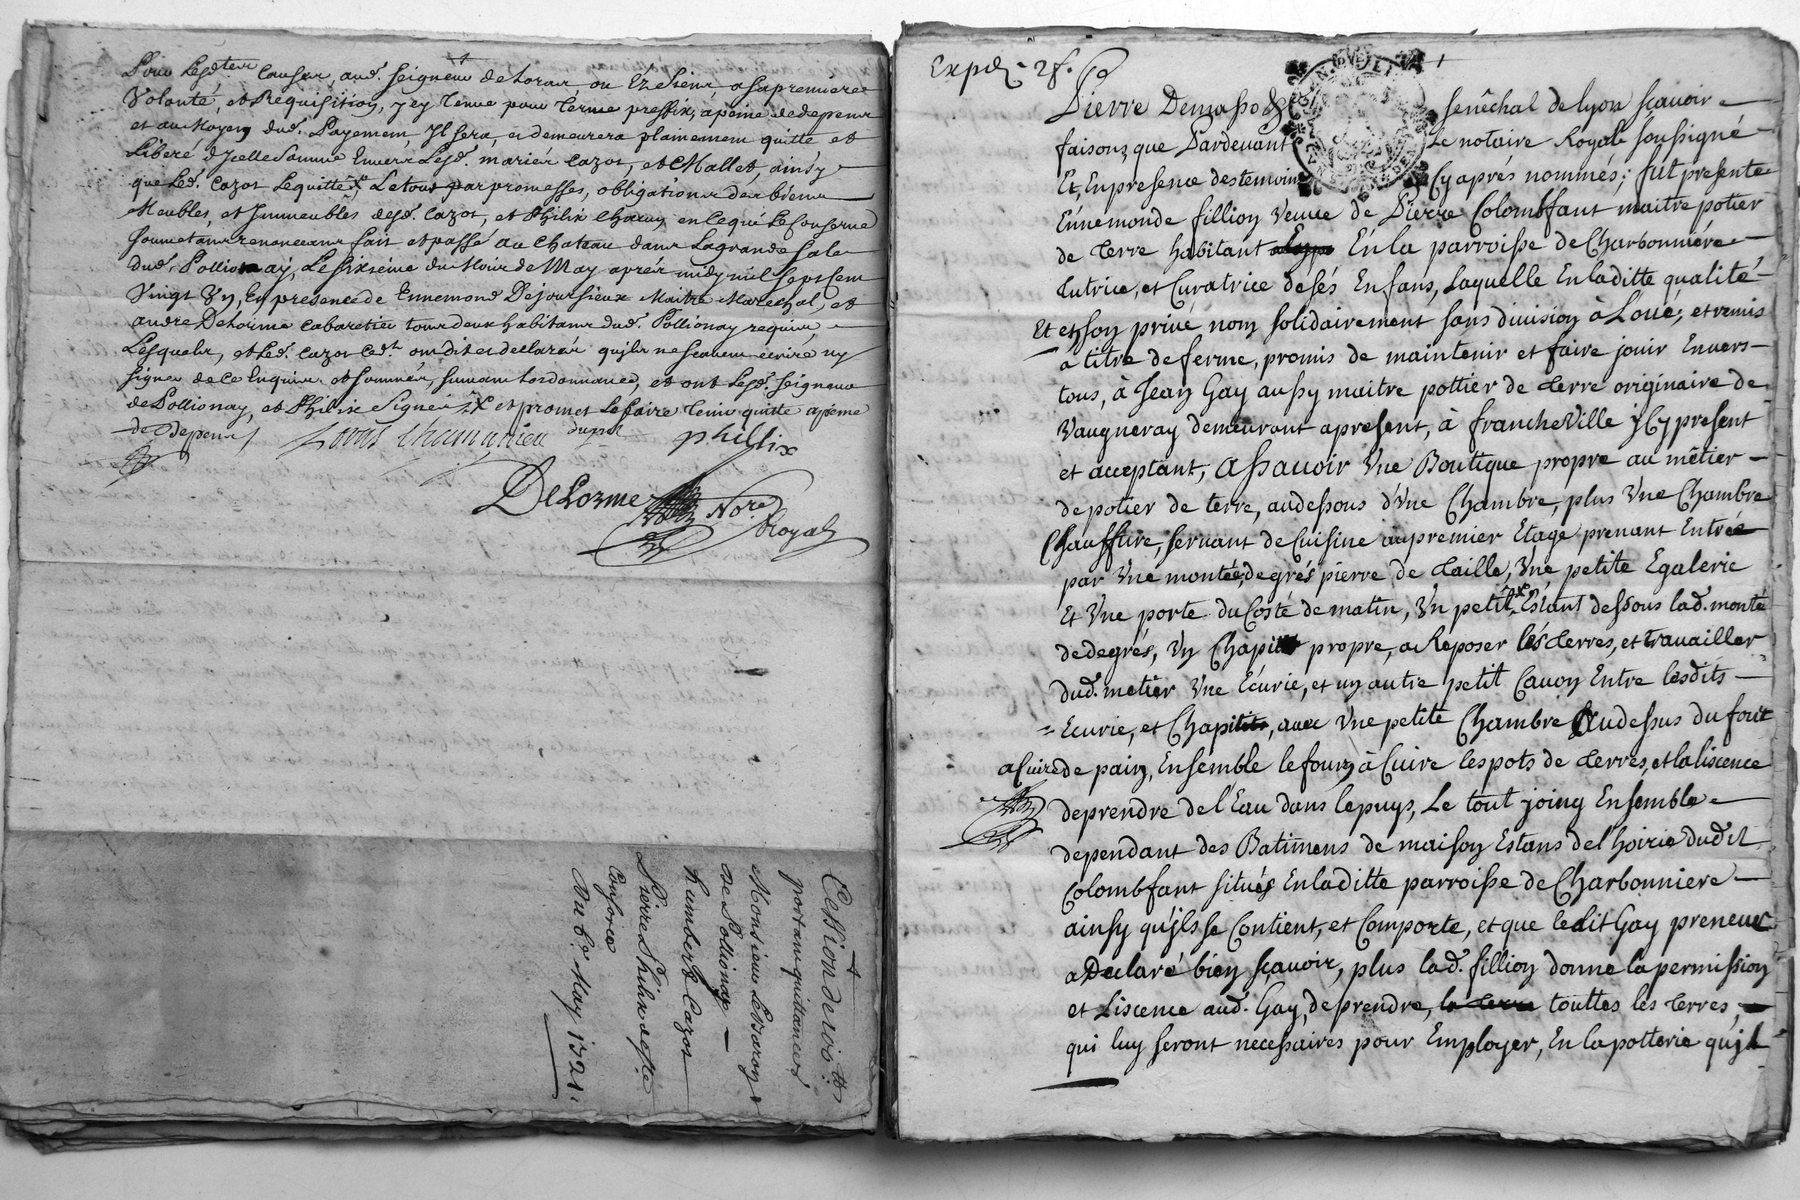 Pour Lesd. Causer, aud. Seigneur de Loras, ou Ez Siens, a sa premiere
Volonté, et Requisition, y ey tenue pour terme preffix, a peine de depens
et au Moyen dud. Payement, Il sera, et demeurera plainement quitte et
Liberé d'Jcelle Somme Envers Lesd. mariés Cazot, et Mallet, ainsy
que Led. Cazot Le quitte, Le tout par promesses, obligations des biens
Meubles, et Jmmeubles desd. Cazot, et Philix Chacun en Ce qui Le Conserne
Soumetans renonceans fait et passé au Chateau dans La grande Sale
dud. Pollionay, Le Sixième du Mois de May aprés midy mil Sept Cent
Vingt Un, En presence de Ennemond Dejoursieux Maitre Marechal, et
andre Delorme Cabaretier tous deux habitans dud. Pollionay requis,
Lesquels, et Led. Cazot Ced. ont dit et declarés qu'ils ne Scavent ecrire ny
Signer de Ce Enquis et Sommés, Suivant Lordonnance, et ont Lesd. Seigneur
de Pollionay, et Philix Signés et promet Le faire tenir quitte a peine
de depens
Loras Chamgthieu phillix
DeLorme Nore
Royal
Cession de
portant quittances
Monsieur Le Baron
de Pollionay
humbert Cazot
Pierre Philix et
Consorce
Du 6e May 1721
Exped. 2f.
Pierre Demasso Senêchal de lyon Scavoir
faisons, que Pardevant Le notaire Royal Soussigné
Et, En presence des temoins Cy aprés nommés; fut presente
Ennemonde fillion Veuve de Pierre Colombfant maitre potier
de terre habitant En la parroisse de Charbonniére
tutrice, et Curatrice de sés Enfans, Laquelle En laditte qualité
Et en son privé nom solidairement sans division à Loüé, et remis
a titre de ferme, promis de maintenir et faire jouir Envers
tous, à Jean Gay aussy maitre pottier de terre originaire de
Vaugneray demeurant a present, à francheVille yCy present
et acceptant, assavoir Vne Boutique propre au mêtier
de potier de terre, au dessous d'Vne Chambre, plus Vne Chambre
Chauffure, servant de Cuisine au premier Etage prenant Entrée
par Vne montée degrés pierre de taille, Vne petite Egalerie
Et Vne porte du Costé de matin, Vn petit Estant dessous lad. monté
de degrés, Vn Chapit propre, a Reposer lés terres, et travailler
dud. metier Vne Ecurie, et un autre petit Cavon Entre lesdits
Ecurie, et Chapit, avec Vne petite Chambre audessus du four
a Cuire de pain, Ensemble le fourn à Cuire les pots de terres, et la liscence
de prendre de l'Eau dans le puys, Le tout joing Ensemble
dependant des Batimens de maison Estans de l'hoirie dudit
Colombfant situés En laditte parroisse de Charbonniere
ainsy qu'jls se Contient, et Comporte, et que ledit Gay preneur
a Declaré bien scavoir, plus lad. fillion donne la permission
et Liscence aud. Gay, de prendre, la terre touttes les terres,
qui luy seront necessaires pour Employer, En la potterie qu'jl